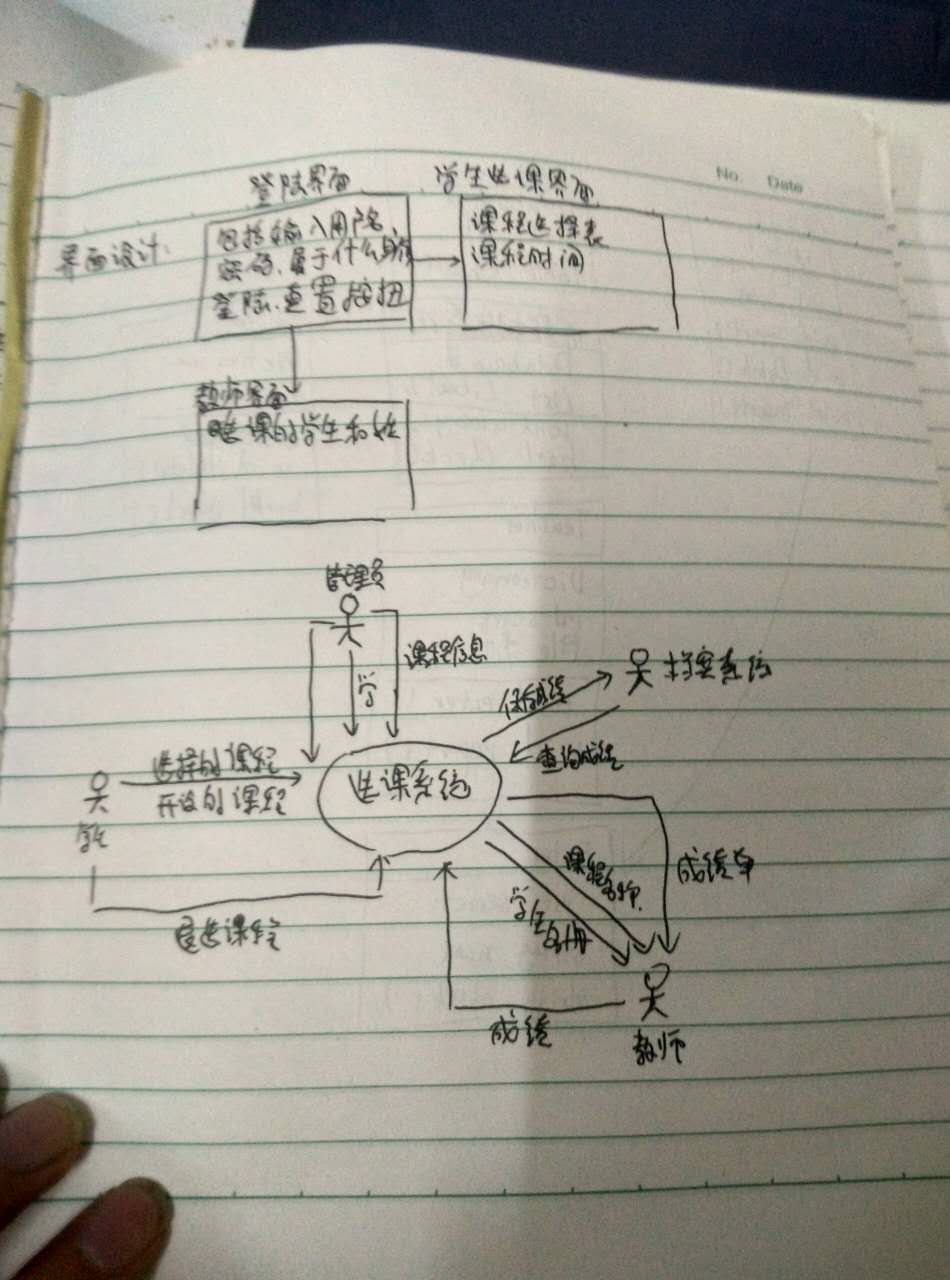 No. Date
登陆界面
学生选课界面
界面设计:
包括输入用户名、
密码、属于什么身份
登陆、重置按钮
课程选择表
课程时间
教师界面
选课的学生和姓
管理员
课程信息
学
档案系统
保存成绩
查询成绩
选择的课程
开设的课程
选课系统
学生
成绩单
课程名称
学生名册
重选课程
成绩
教师